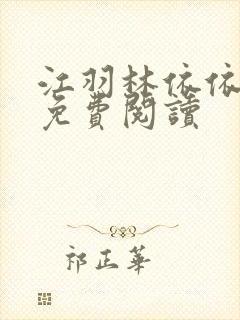 江羽林依依
免費閱讀
祁正華